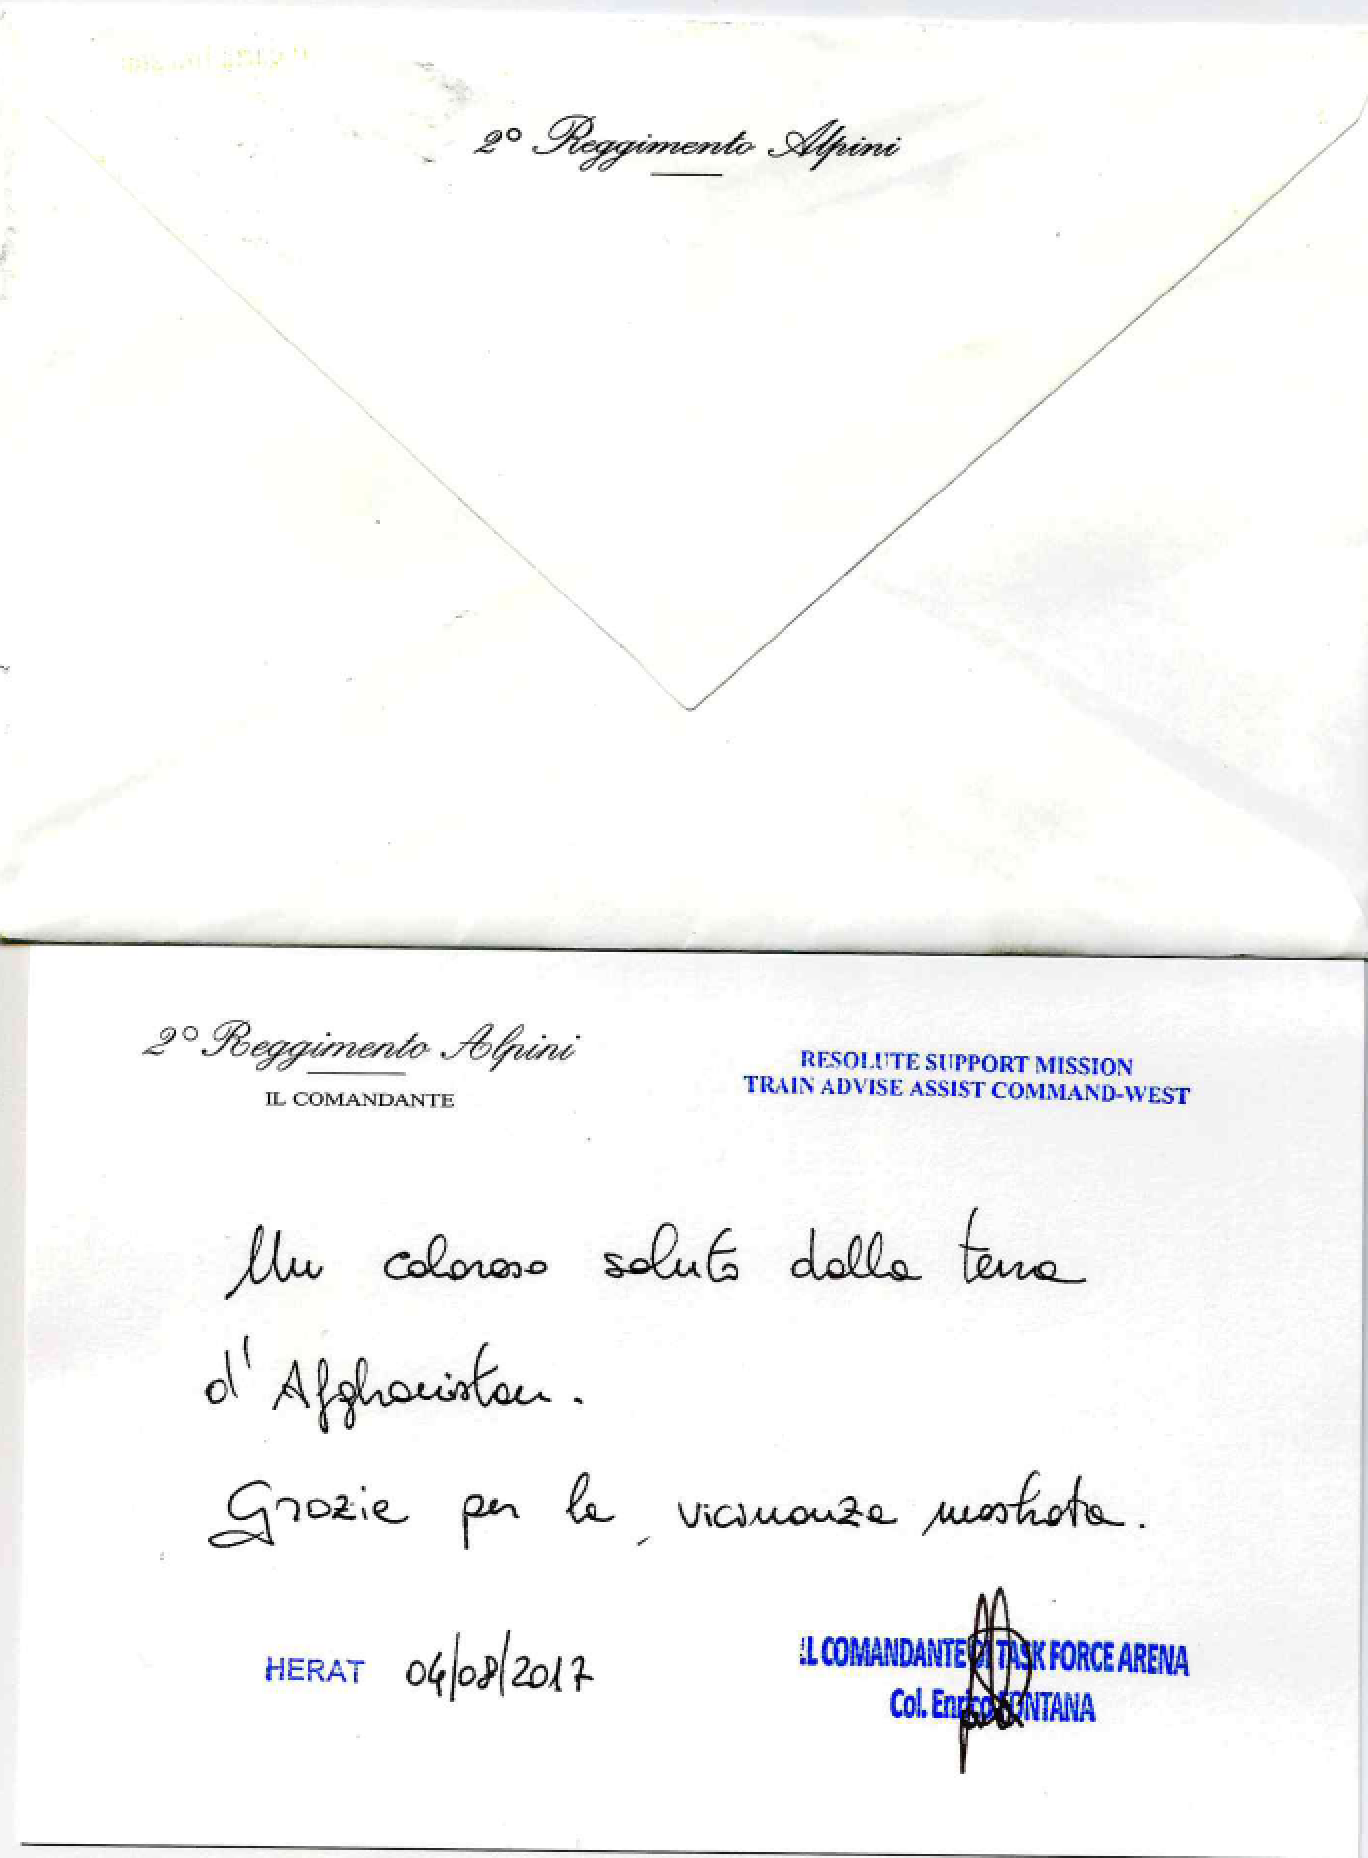 2° Reggimento Alpini
2° Reggimento Alpini
IL COMANDANTE
RESOLUTE SUPPORT MISSION
TRAIN ADVISE ASSIST COMMAND-WEST
Un caloroso saluto dalla terra
d'Afghanistan.
Grazie per la vicinanza mostrata.
HERAT 04/08/2017
IL COMANDANTE DI TASK FORCE ARENA
Col. Enrico FONTANA